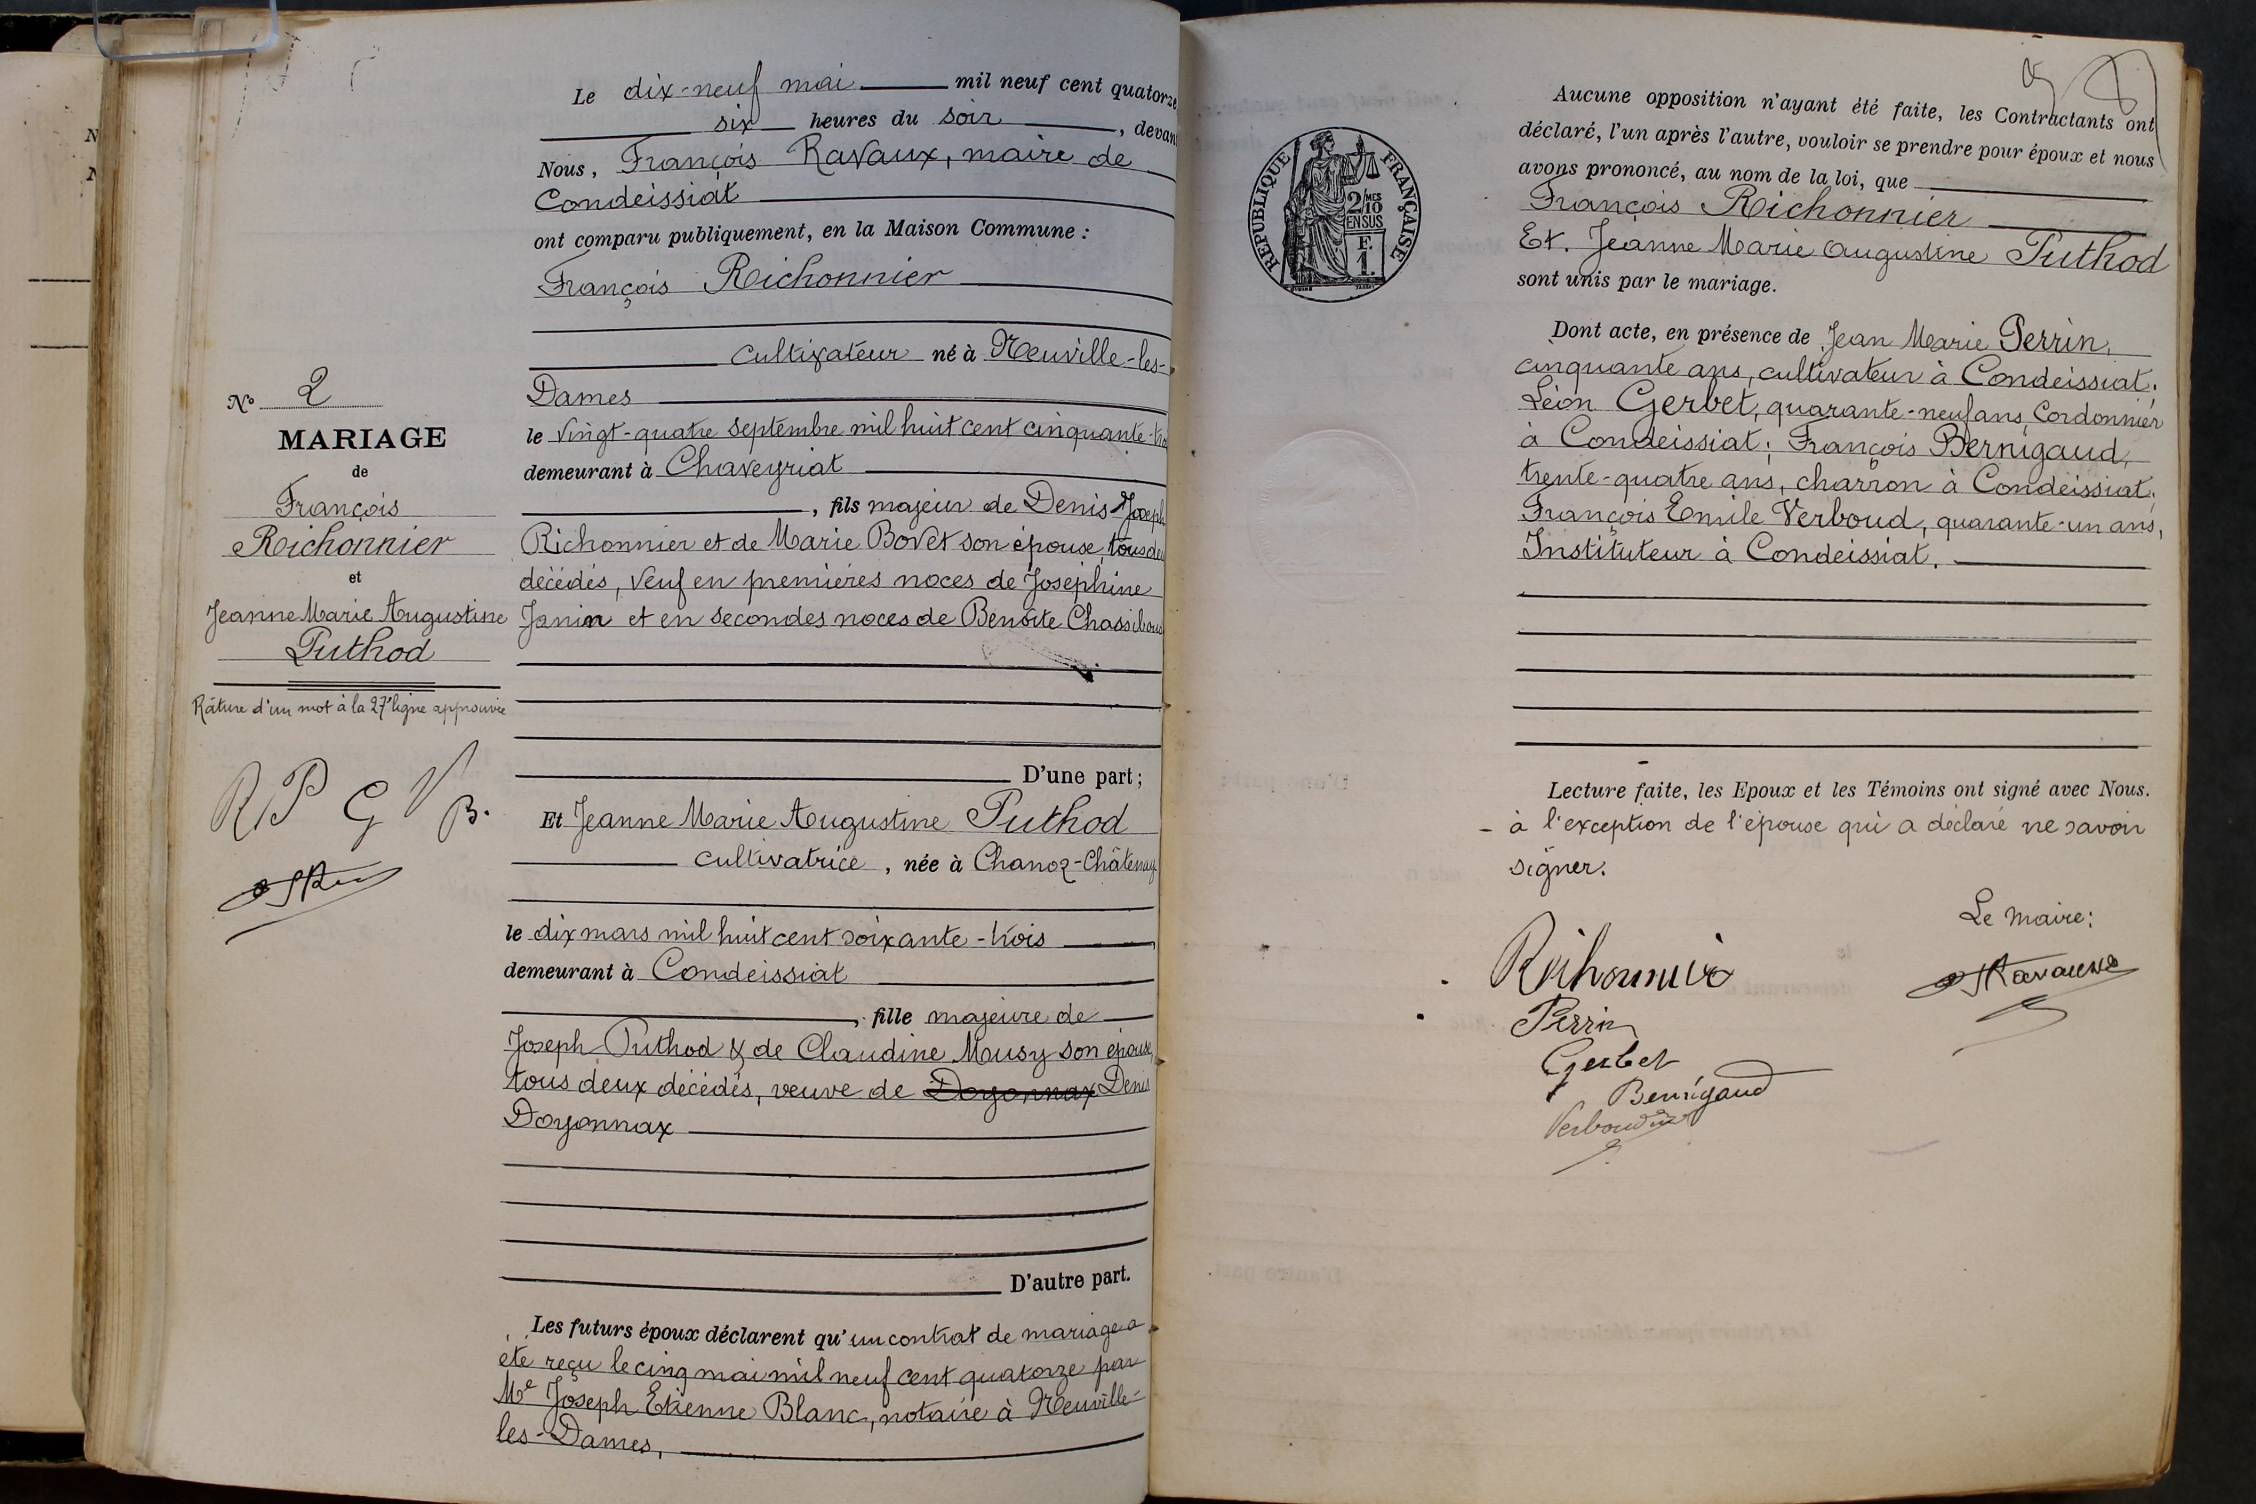 Le dix-neuf mai mil neuf cent quatorze
six heures du soir, devant
Nous, François Ravaux, maire de
Condeissiat
ont comparu publiquement, en la Maison Commune :
François Richonnier
cultivateur né à Neuville-les-
Dames
le vingt-quatre septembre mil huit cent cinquante-trois
demeurant à Chaveyriat
, fils majeur de Denis Joseph
Richonnier et de Marie Bovet son épouse, tous deux
décédés, veuf en premières noces de Joséphine
Janin et en secondes noces de Benoîte Chassiboud
D'une part ;
Et Jeanne Marie Augustine Puthod
cultivatrice, née à Chanoz-Châtenay
le dix mars mil huit cent soixante-trois
demeurant à Condeissiat
, fille majeure de
Joseph Puthod & de Claudine Musy son épouse,
tous deux décédés, veuve de Doyonnax Denis
Doyonnax
D'autre part.
Les futurs époux déclarent qu'un contrat de mariage a
été reçu le cinq mai mil neuf cent quatorze par
Me Joseph Etienne Blanc, notaire à Neuville-
les-Dames,
No 2
MARIAGE
de
François
Richonnier
et
Jeanne Marie Augustine
Puthod
Râture d'un mot à la 27e ligne approuvée
R P G V B.
RÉPUBLIQUE FRANÇAISE
2/MES
10
EN SUS
F.
1.
Aucune opposition n'ayant été faite, les Contractants ont
déclaré, l'un après l'autre, vouloir se prendre pour époux et nous
avons prononcé, au nom de la loi, que
François Richonnier
Et. Jeanne Marie Augustine Puthod
sont unis par le mariage.
Dont acte, en présence de Jean Marie Perrin,
cinquante ans, cultivateur à Condeissiat;
Léon Gerbet, quarante-neuf ans, Cordonnier
à Condeissiat; François Bernigaud,
trente-quatre ans, charron à Condeissiat;
François Emile Verboud, quarante-un ans,
Instituteur à Condeissiat.
Lecture faite, les Epoux et les Témoins ont signé avec Nous.
- à l'exception de l'épouse qui a déclaré ne savoir
signer.
Le Maire:
Richonnier
Ravaux
Perrin
Gerbet
Bernigaud
Verboud